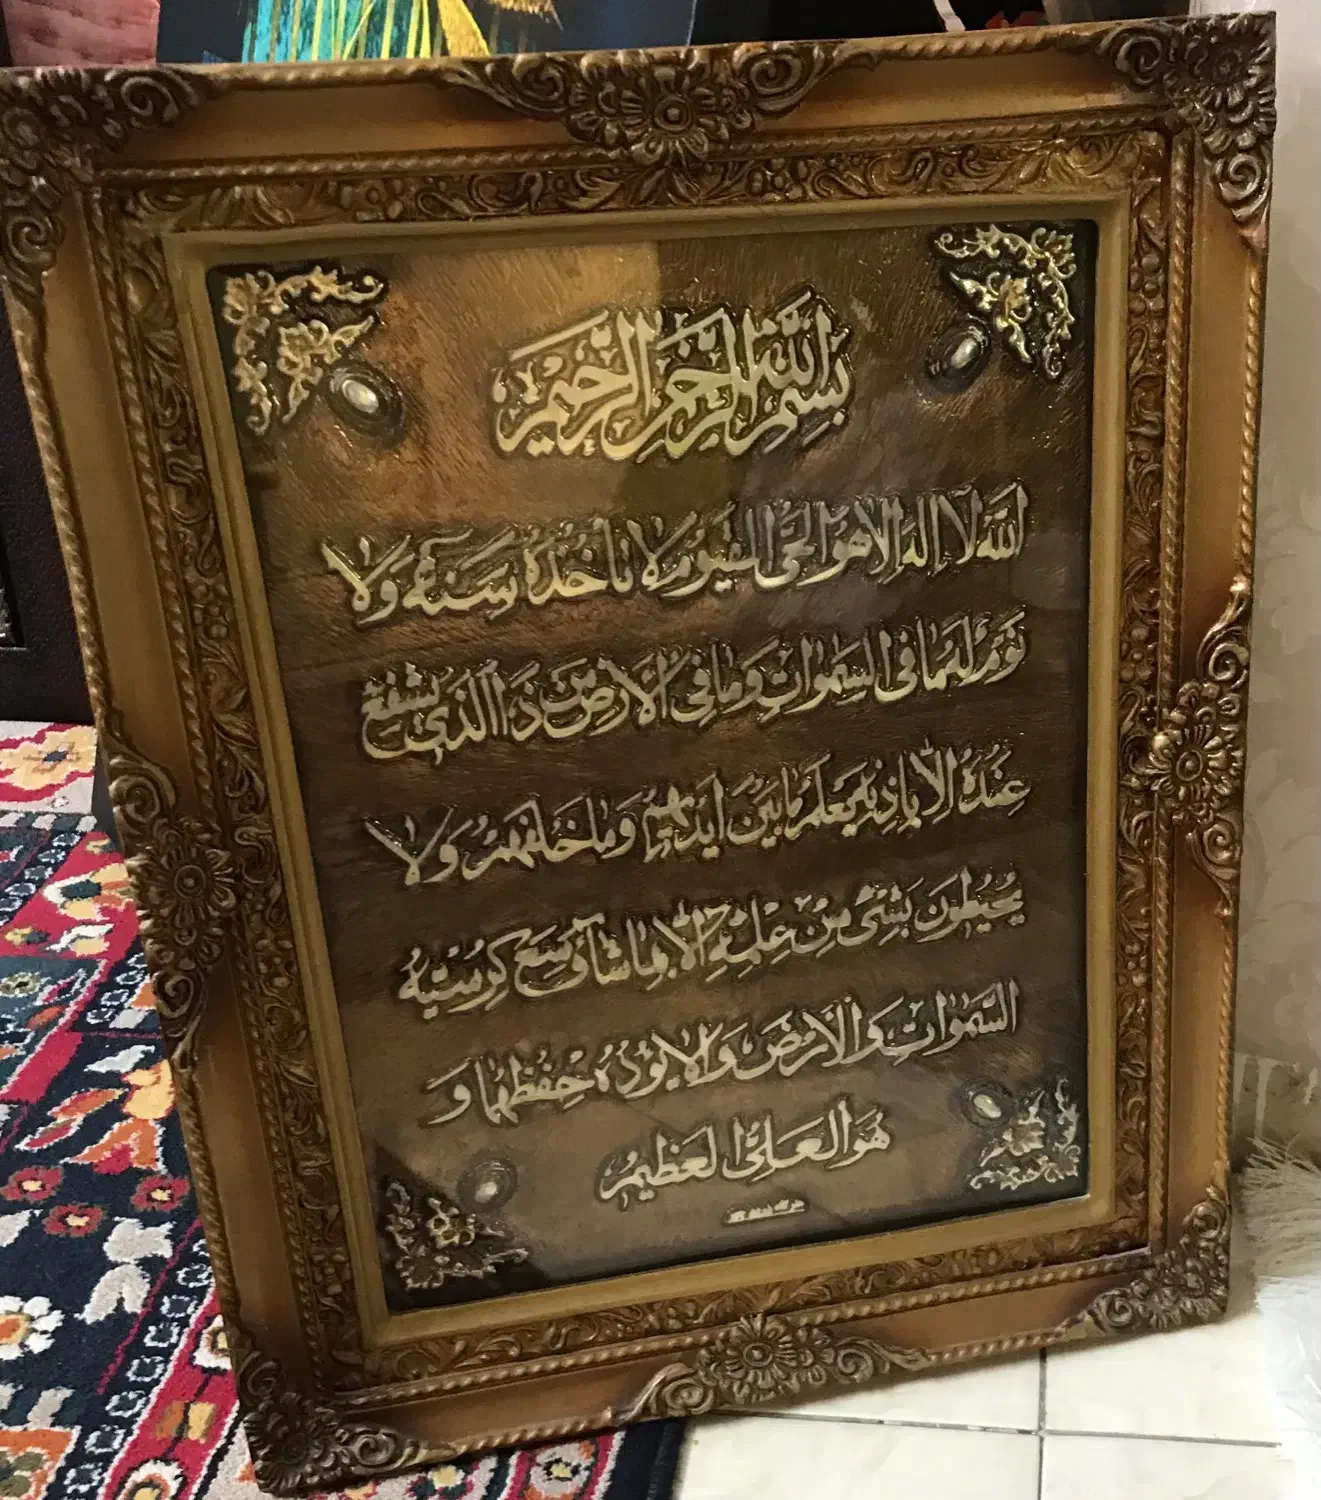 بِسْمِ اللهِ الرَّحْمٰنِ الرَّحِيْمِ
اللهُ لَا اِلٰهَ اِلَّا هُوَ الْحَیُّ الْقَيُّومُ لَا تَاْخُذُهُ سِنَةٌ وَلَا
نَوْمٌ لَهُ مَا فِی السَّمٰوَاتِ وَمَا فِی الْاَرْضِ مَنْ ذَا الَّذِی يَشْفَعُ
عِنْدَهُ اِلَّا بِاِذْنِهِ يَعْلَمُ مَا بَيْنَ اَيْدِيْهِمْ وَمَا خَلْفَهُمْ وَلَا
يُحِيْطُوْنَ بِشَیْءٍ مِنْ عِلْمِهِ اِلَّا بِمَا شَآءَ وَسِعَ كُرْسِيُّهُ
السَّمٰوَاتِ وَالْاَرْضَ وَلَا يَؤُدُهُ حِفْظُهُمَا وَ
هُوَ الْعَلِیُّ الْعَظِيْمُ